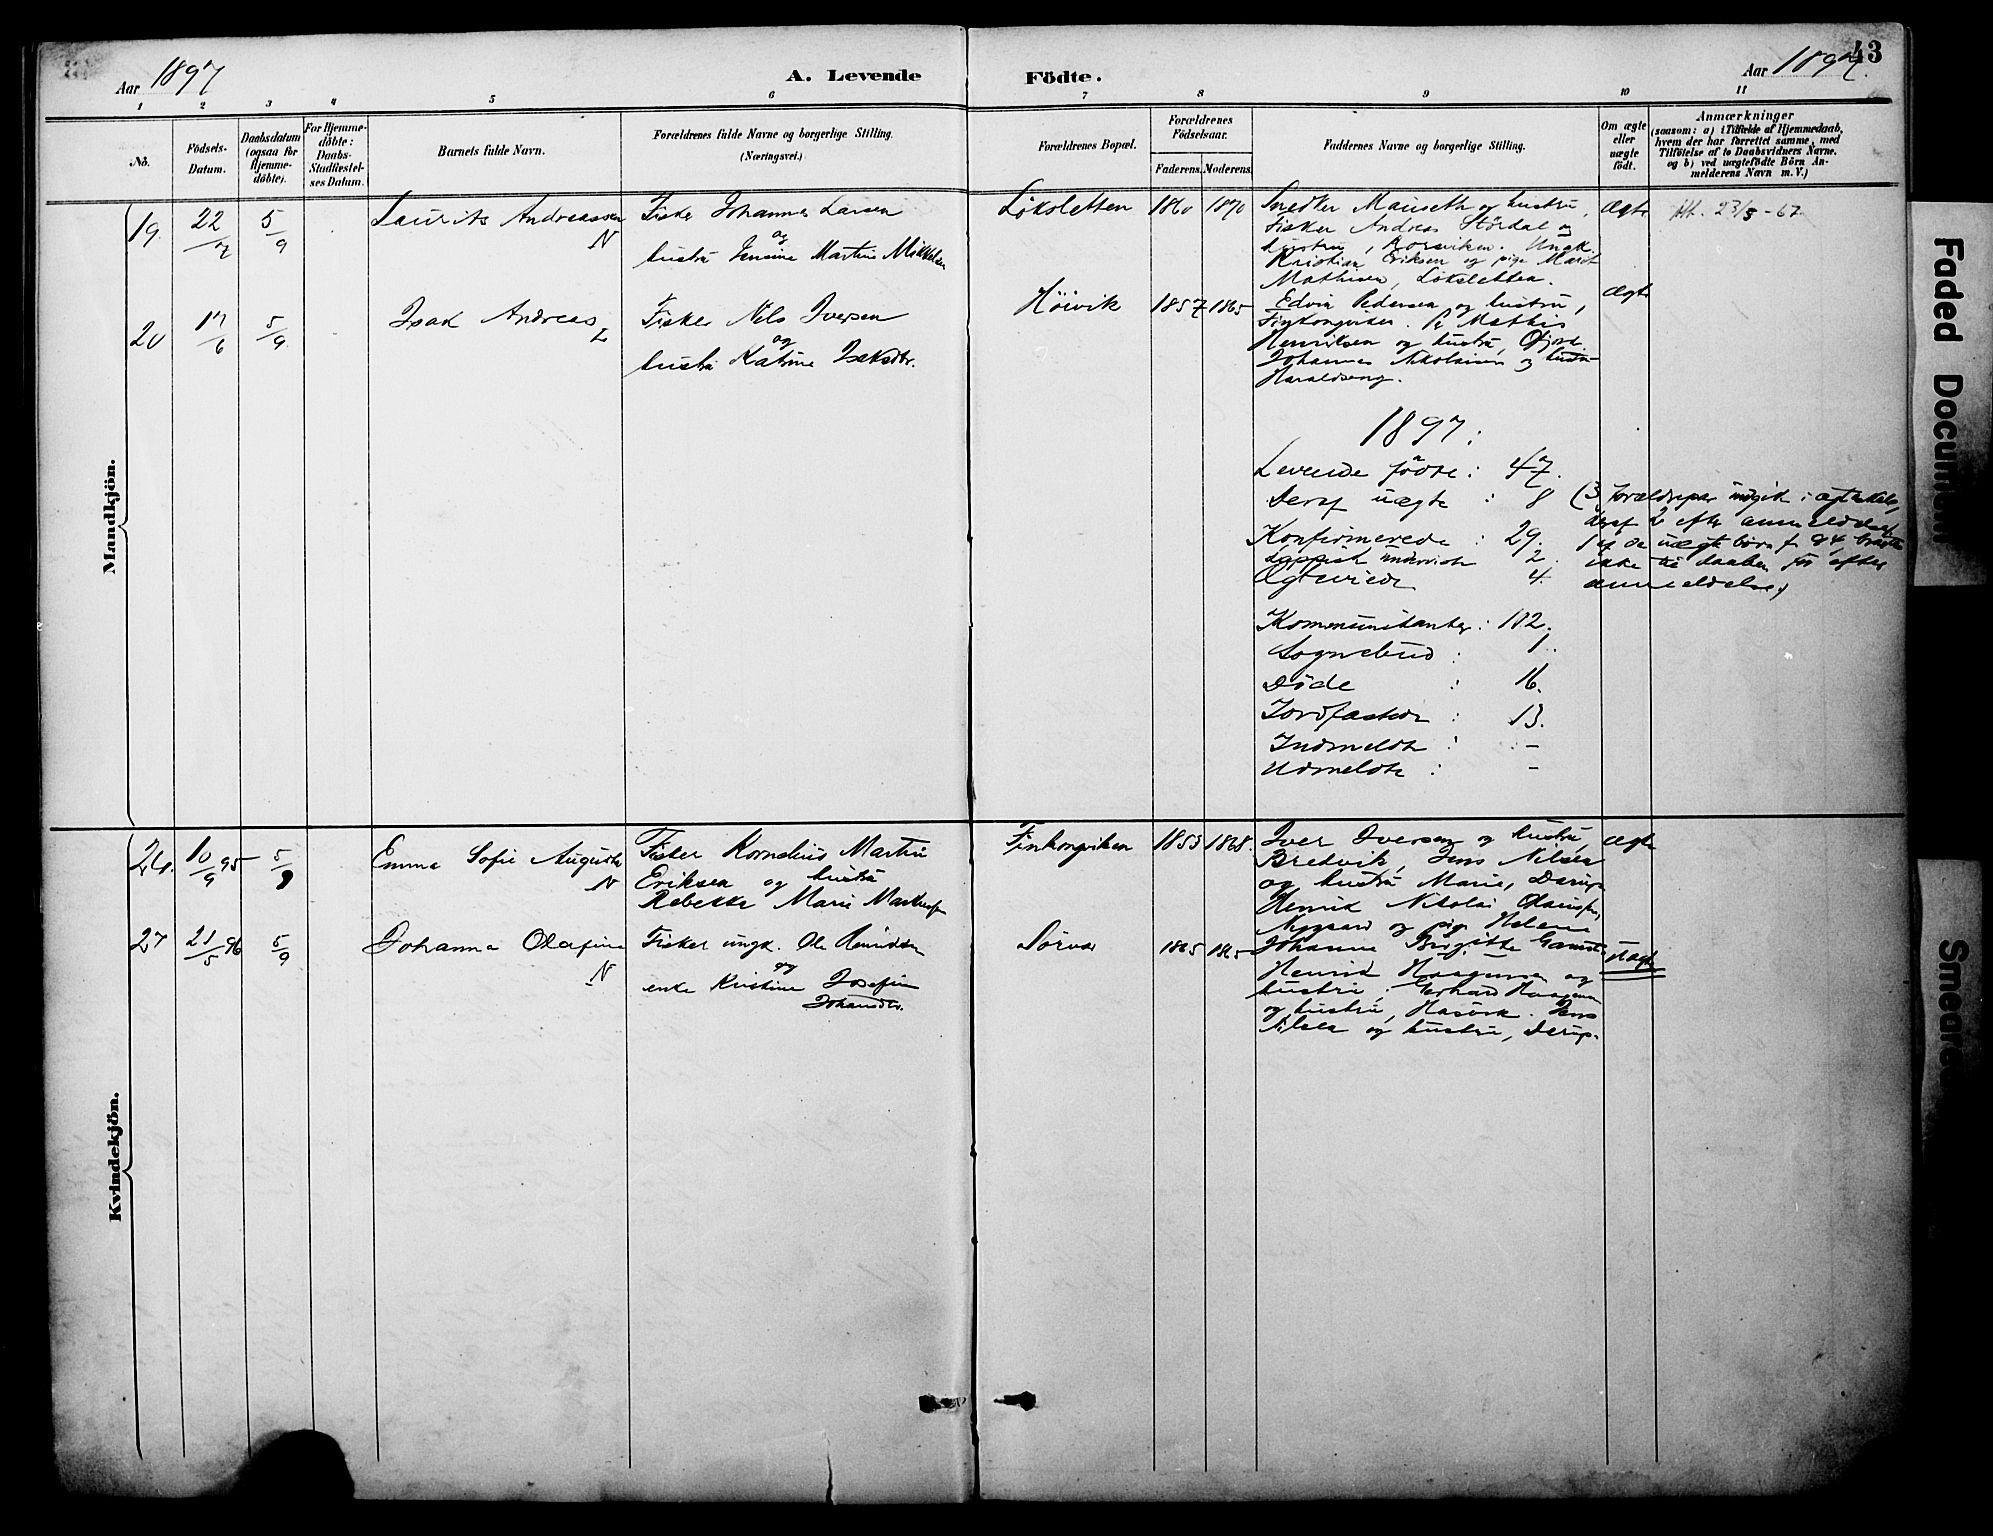 43
Aar 1897
A. Levende Födte.
Aar 1897.
1 2 3 4 5 6 7 8 9 10 11
No.
Födsels-Datum.
Daabsdatum (ogsaa for Hjemme-döbte).
For Hjemme-döbte: Daabs-Stadfæstel-ses Datum.
Barnets fulde Navn.
Forældrenes fulde Navne og borgerlige Stilling.
(Næringsvei.)
Forældrenes Bopæl.
Forældrenes Födselsaar.
Faderens. Moderens.
Faddernes Navne og borgerlige Stilling.
Om ægte eller uægte födt.
Anmærkninger
(saasom: a) i Tilfælde af Hjemmedaab,
hvem der har forrettet samme, med
Tilföielse af to Daabsvidners Navne.
og b) ved uægtefödte Börn An-
melderens Navn m. V.)
Mandkjön.
19. 22/7 5/9 Laurits Andreassen N
Fisker Johannes Larsen
og
hustru Jensine Martine Mikkelsen
Löksletten 1860 1870
Snedker Mauseth og hustru,
Fisker Andreas Stördal og
hustru, Korsviken. Ungk.
Kristian Eriksen og pige Marit
Mathisen, Löksletten.
Ægte
Att. 23/3-62
20 17/6 5/9 Isak Andreas L
Fisker Nels Iversen
og
hustru Katrine Isaksdtr.
Höivik 1857 1865
Edvin Pedersen og hustru,
Finkongviken. Mathis
Henriksen og hustru,
Johannes Nikolaisen og hustru
Haraldseng.
Ægte
1897:
Levende födte: 47.
Deraf uægte : 8 (3 forældrepar indgik i ægteskab,
deraf 2 efter anmeldelse
Konfirmerede : 29.
Lappisk 2.
Ægteviede 4.
ikke til daaben før efter
anmeldelse)
Kommunikanter: 102.
Sognebud : 1.
Döde : 16.
Jordfæstede : 13.
Indmeldte : -
Udmeldte : -
Kvindekjön.
26. 10/9 95 5/9 Emma Sofie Augusta N
Fisker Kornelius Martin
Eriksen og hustru
Rebekka Marie
Finkongviken 1853 1868.
Iver Iversen og hustru,
Bredvik, Jens Nilsen
og hustru Marie,
Henrik Nikolai
Nygaard og pige Helene
Ægte
27 21/5 96 5/9 Johanna Olafine N
Fisker ungk. Ole
og
enke Kristine Josefine
Johansdtr.
Sörvær 1865 1865
Johanne Birgitte
Henrik Haagensen og
hustru, Gerhard Haagensen
og hustru, Hasvik. Jens
Nilsen og hustru,
Uægte
Faded Document
Smeared